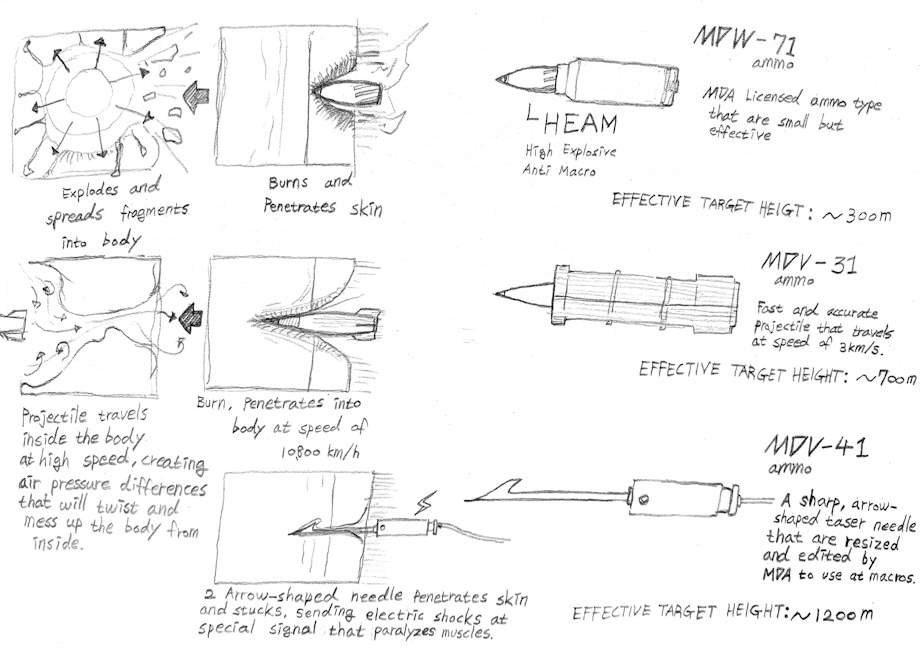 MDW-71
ammo
MDA Licensed ammo type
that are small but
effective
HEAM
High Explosive
Anti Macro
EFFECTIVE TARGET HEIGT: ~300m
Explodes and
spreads fragments
into body
Burns and
Penetrates skin
MDV-31
ammo
Fast and accurate
Projectile that travels
at speed of 3km/s.
EFFECTIVE TARGET HEIGHT: ~700m
Projectile travels
inside the body
at high speed, creating
air pressure differences
that will twist and
mess up the body from
inside.
Burn, Penetrates into
body at speed of
10800 km/h
MDV-41
ammo
A sharp, arrow-
shaped taser needle
that are resized
and edited by
MDA to use at macros.
EFFECTIVE TARGET HEIGHT: ~1200m
2 Arrow-shaped needle Penetrates skin
and stucks, sending electric shocks at
special signal that paralyzes muscles.